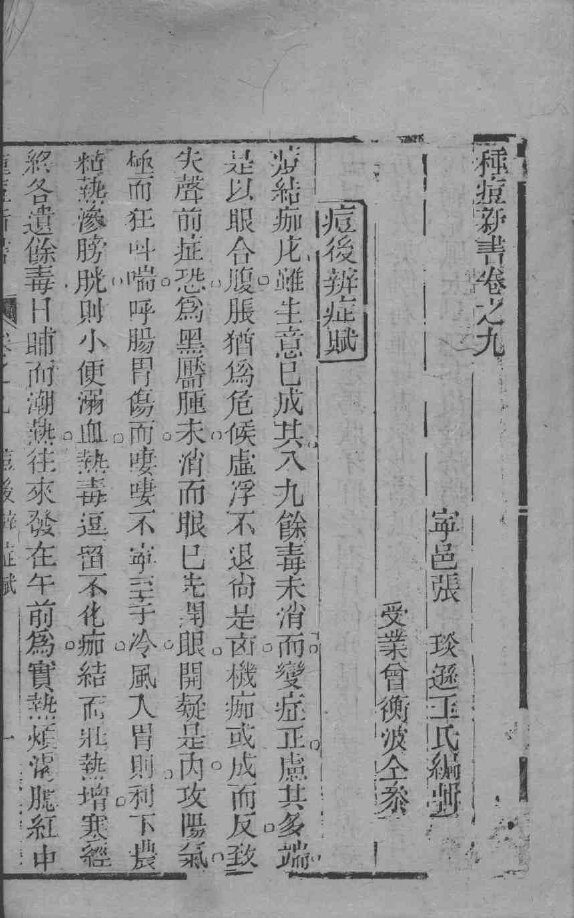 種痘新書卷之九
寧邑張 琰遜玉氏編輯
受業曾衡波仝叅
痘後辨症賦
痘結痂庀雖生意已成其八九餘毒未消而變症正慮其多端
是以眼合腹脹猶爲危候虛浮不退尙是凶機痂或成而反致
失聲前症恐爲黑靨腫未消而眼已先開眼開疑是內攻陽氣
極而狂叫喘呼腸胃傷而啛啛不寧至于冷風入胃則利下膿
粘熱滲膀胱則小便溺血熱毒逗留不化痂結而壯熱增寒經
終各遺餘毒日晡而潮熱往來發在午前爲實熱煩渴腮紅中
種痘新書 卷之九 痘後辨症賦 一